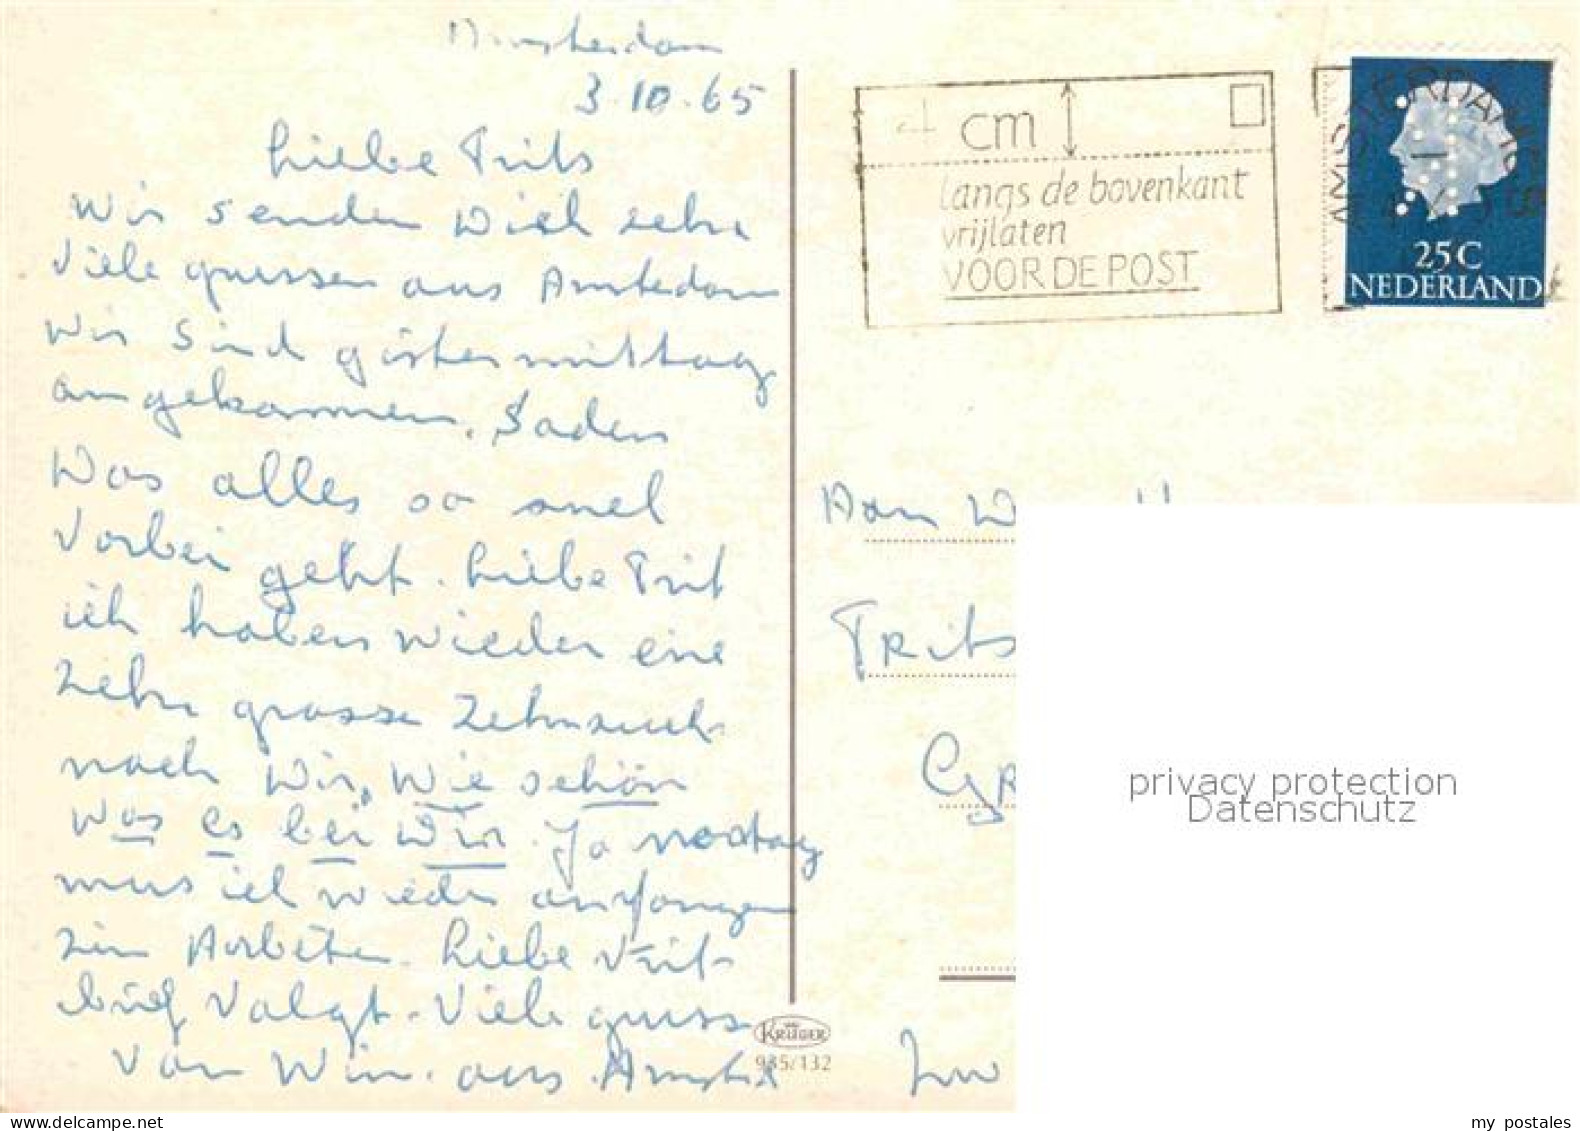 Amsterdam
3.10.65
Liebe Frits
Wir senden Dich sehr
Viele grussen aus Amsterdam
Wir Sind gistermittag
angekommen. Saden
Was alles so snel
Vorbei geht. Liebe Frit
ich haben wieder eine
Zehr grosse Zehnsuch
nach Wir, Wie schön
was es bei Wir. Ja
mus ich wieder anfangen
zim Arbeiten. Liebe Frit
brief Valgt. Viele gruss
Van Wim. aus Amster
KRÜGER
935/132
cm
langs de bovenkant
vrijlaten
VOOR DE POST
AMSTERDAM
25C
NEDERLAND
Aan
Frits
privacy protection
Datenschutz
my postales